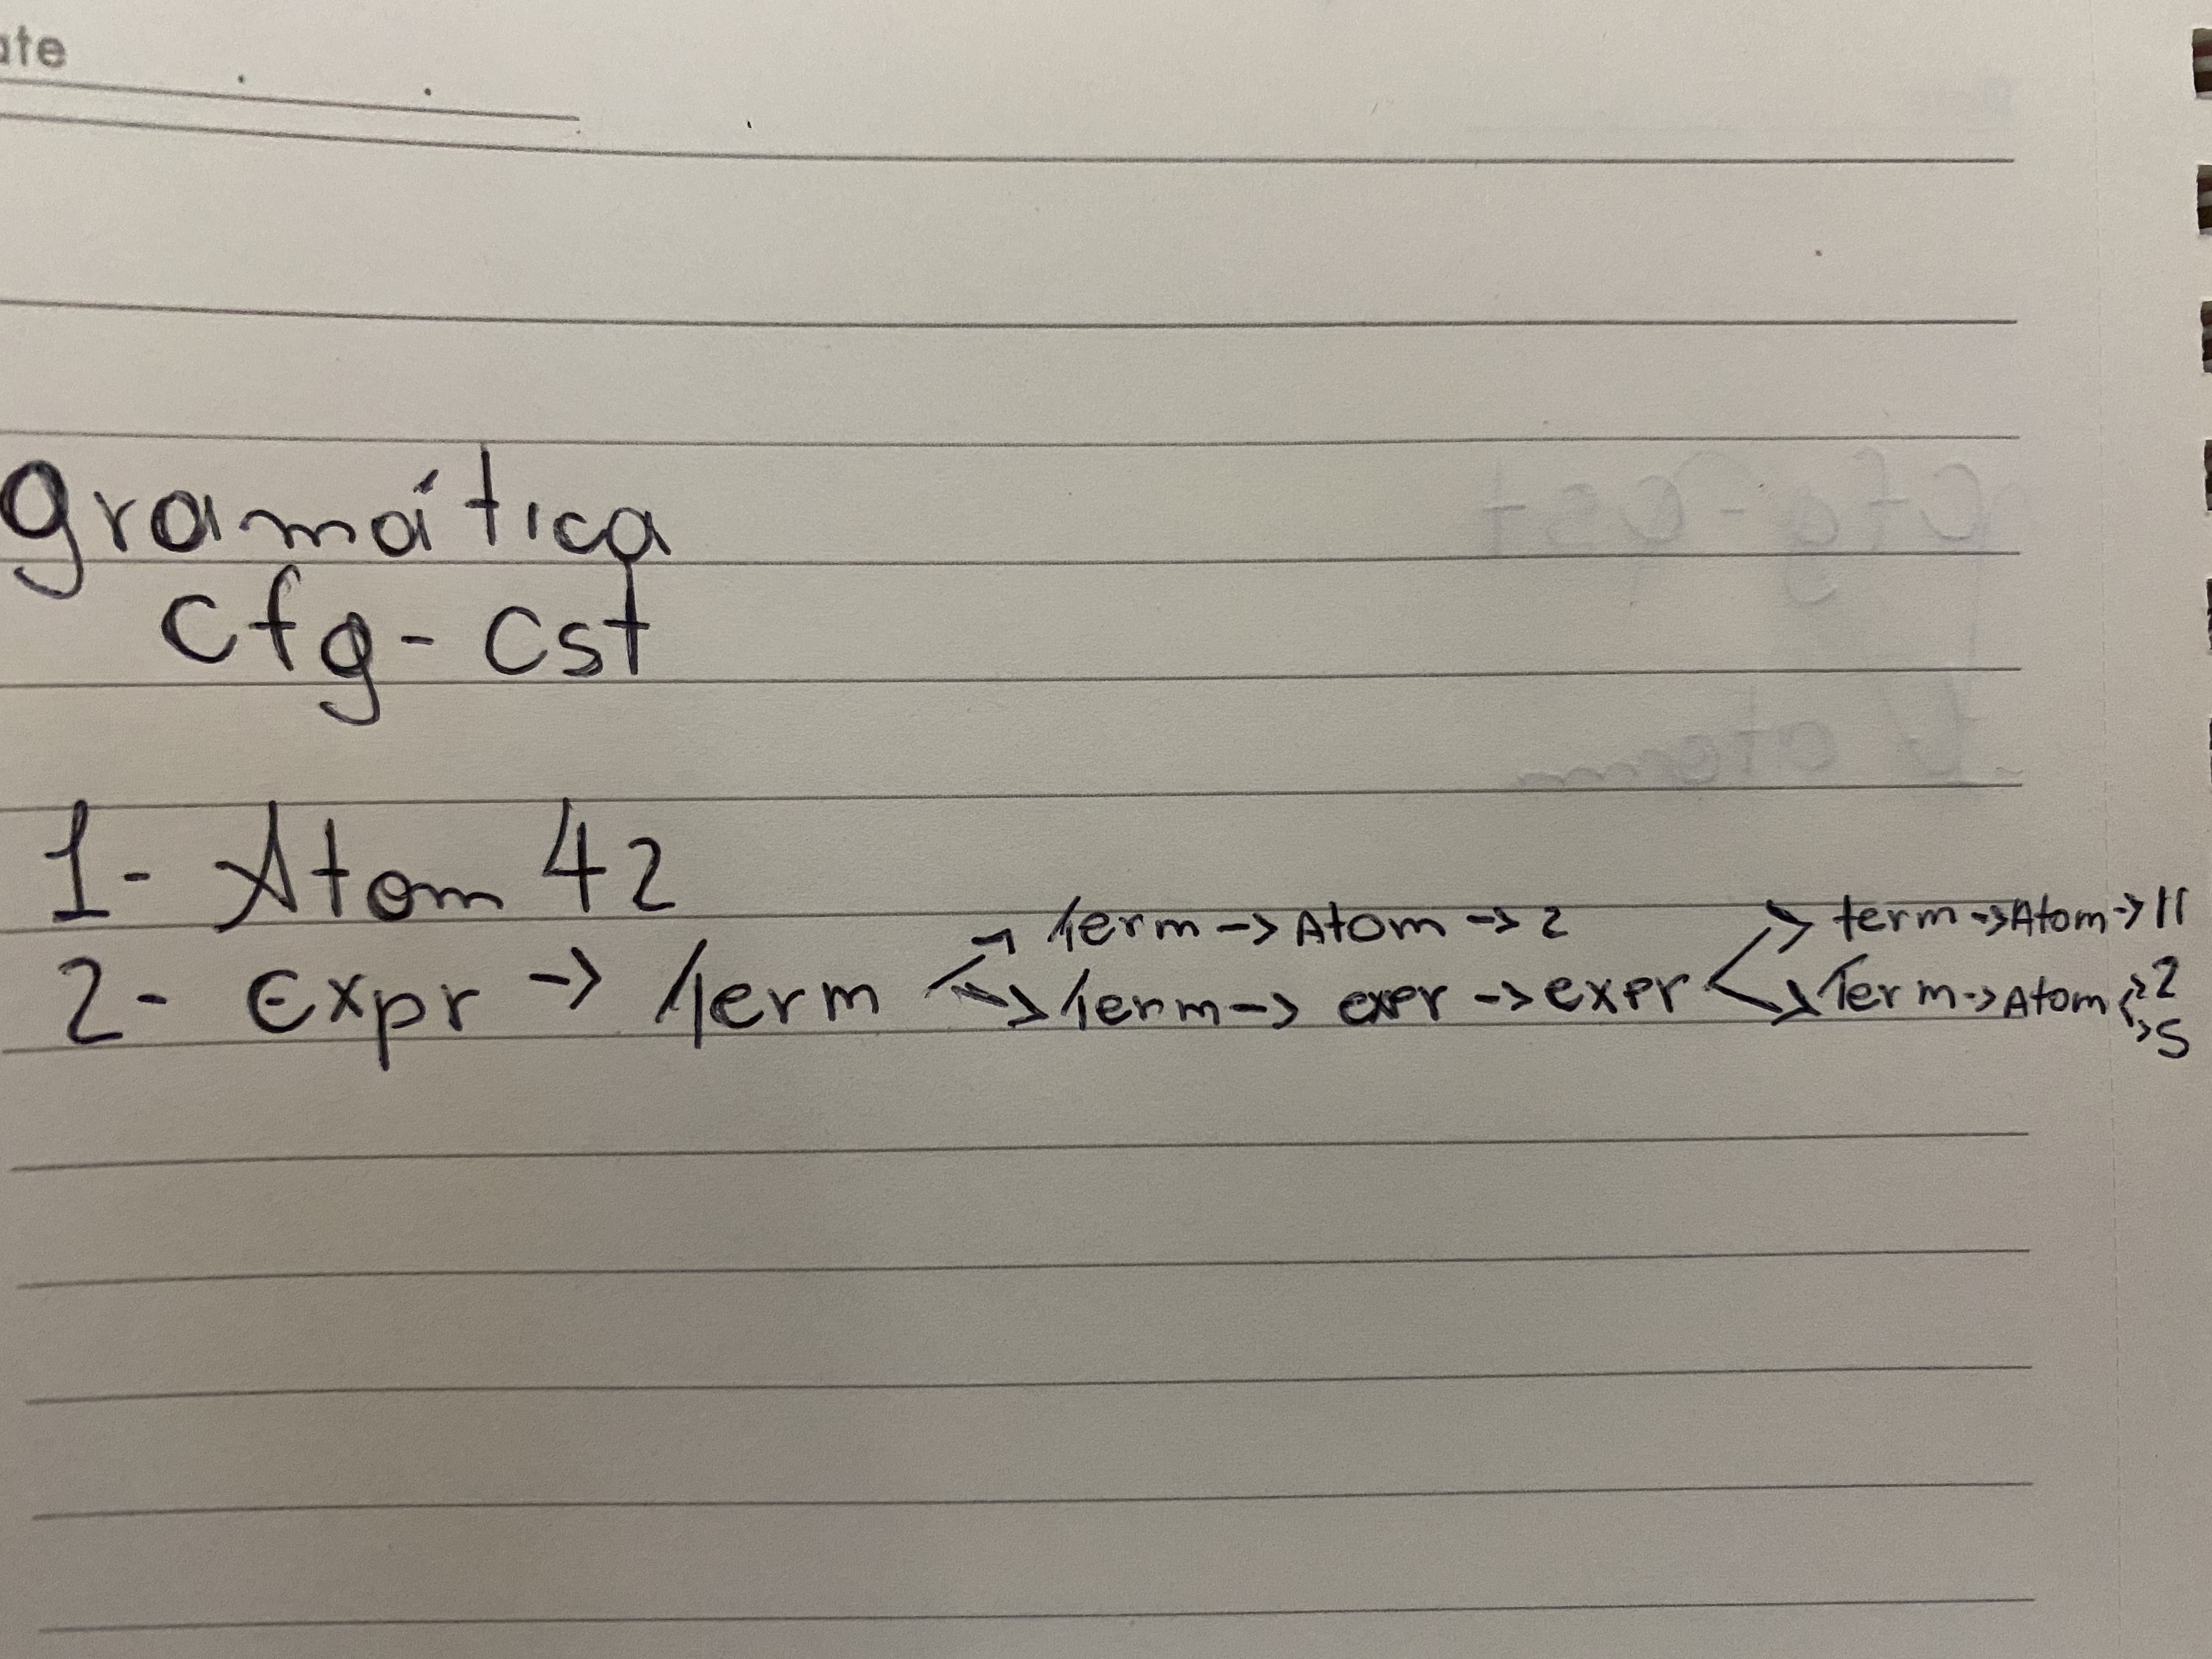 ate
gramática
cfg-cst
1- Atom 42
2- Expr -> Term -> Term -> Atom -> 2
-> Term -> expr -> expr -> term -> Atom -> 11
-> Term -> Atom -> 2
-> 5